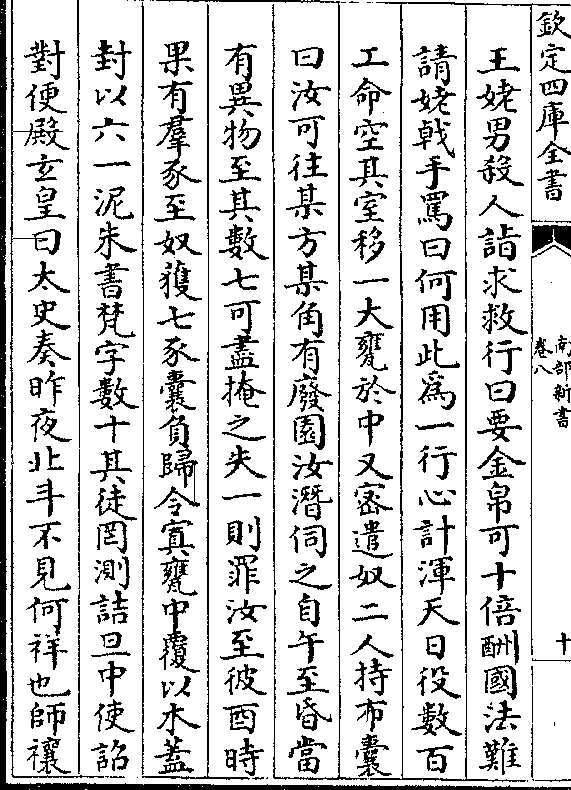 欽定四庫全書
南部新書
卷八
十
王姥男殺人詣求救行曰要金帛可十倍酬國法難
請姥戟手罵曰何用此為一行心計渾天日役數百
工命空其室移一大甕於中又密遣奴二人持布囊
曰汝可往某方某角有廢園汝潛伺之自午至昏當
有異物至其數七可盡掩之失一則罪汝至彼酉時
果有羣豕至奴獲七豕囊負歸令寘甕中覆以木蓋
封以六一泥朱書梵字數十其徒罔測詰旦中使詔
對便殿玄皇曰太史奏昨夜北斗不見何祥也師禳